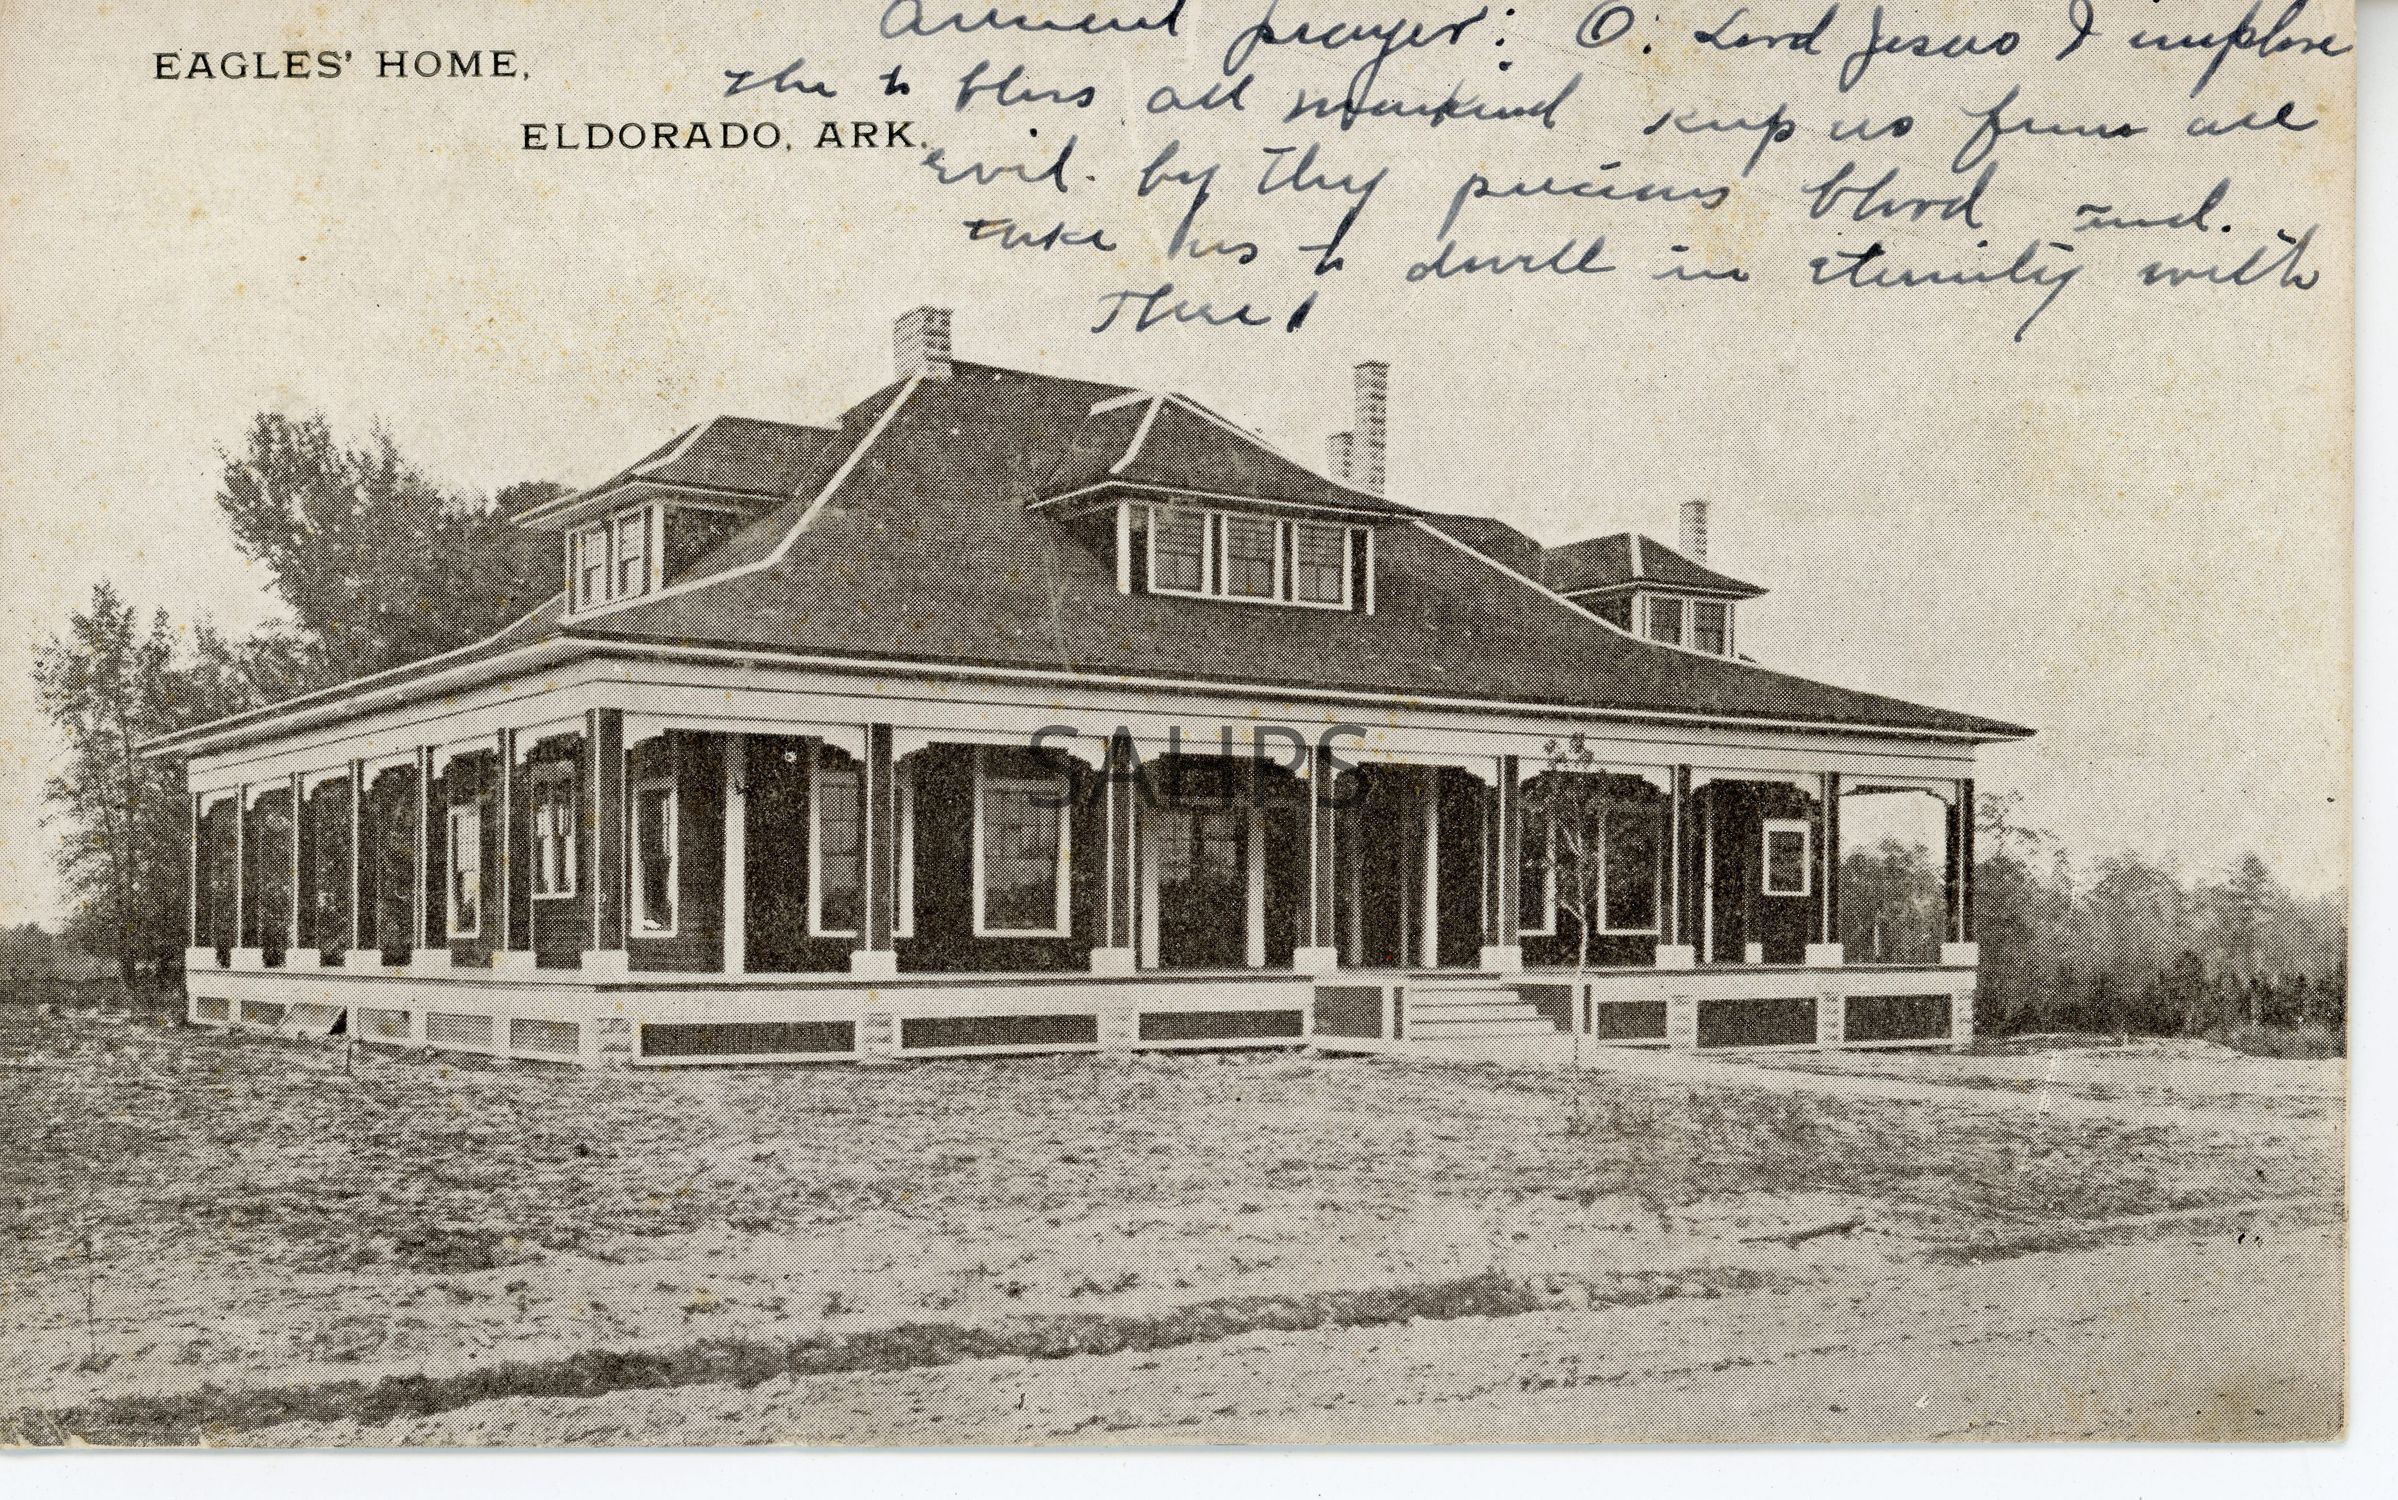 EAGLES' HOME,
ELDORADO, ARK.
prayer: O. Lord Jesus I implore
the to bless all mankind keep us from all
evil. by Thy precious blood and.
take us to dwell in eternity with
Thee!
SAHPS